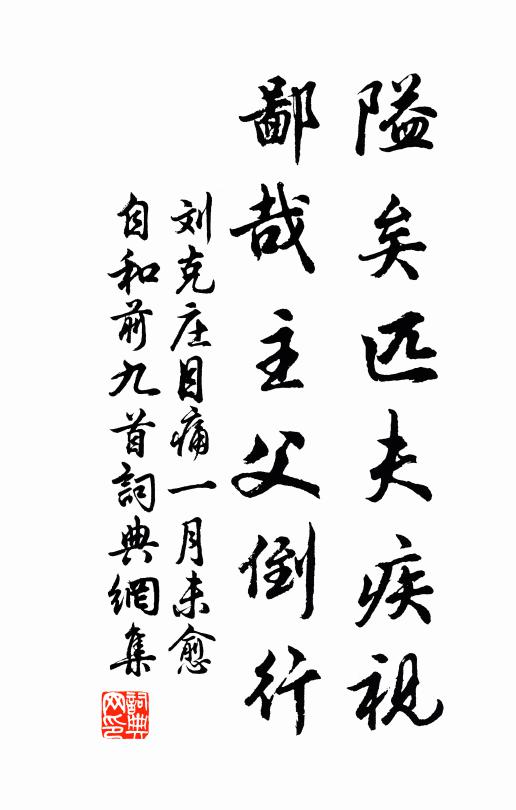 隘矣匹夫疾視
鄙哉主父倒行
刘克庄目痛一月未愈
自和前九首詞典網集
詞典
网印